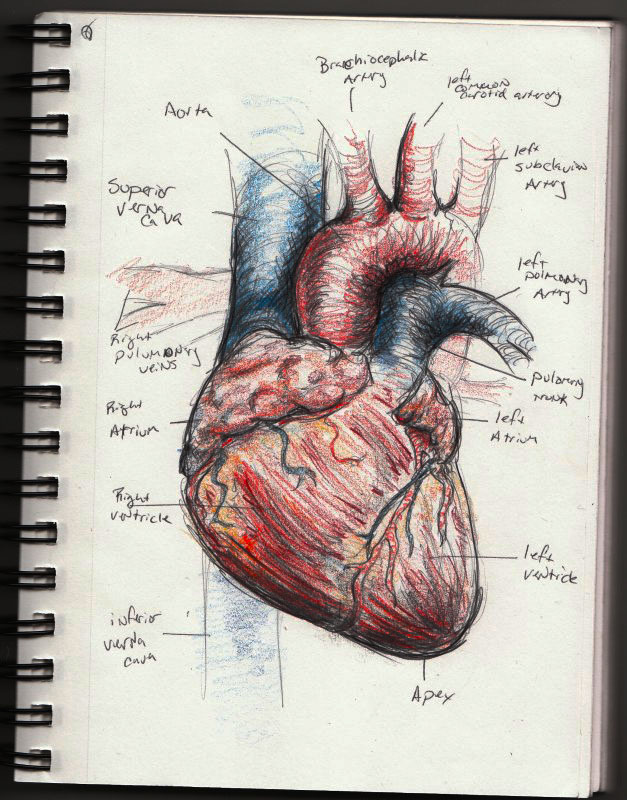 Brachiocephalic
Artery
left
common
carotid artery
Aorta
left
subclavian
Artery
Superior
Verna
Cava
left
pulmonary
Artery
Right
pulumonary
veins
pulmnry
trunk
Right
Atrium
left
Atrium
Right
ventricle
left
ventricle
inferior
verna
cava
Apex